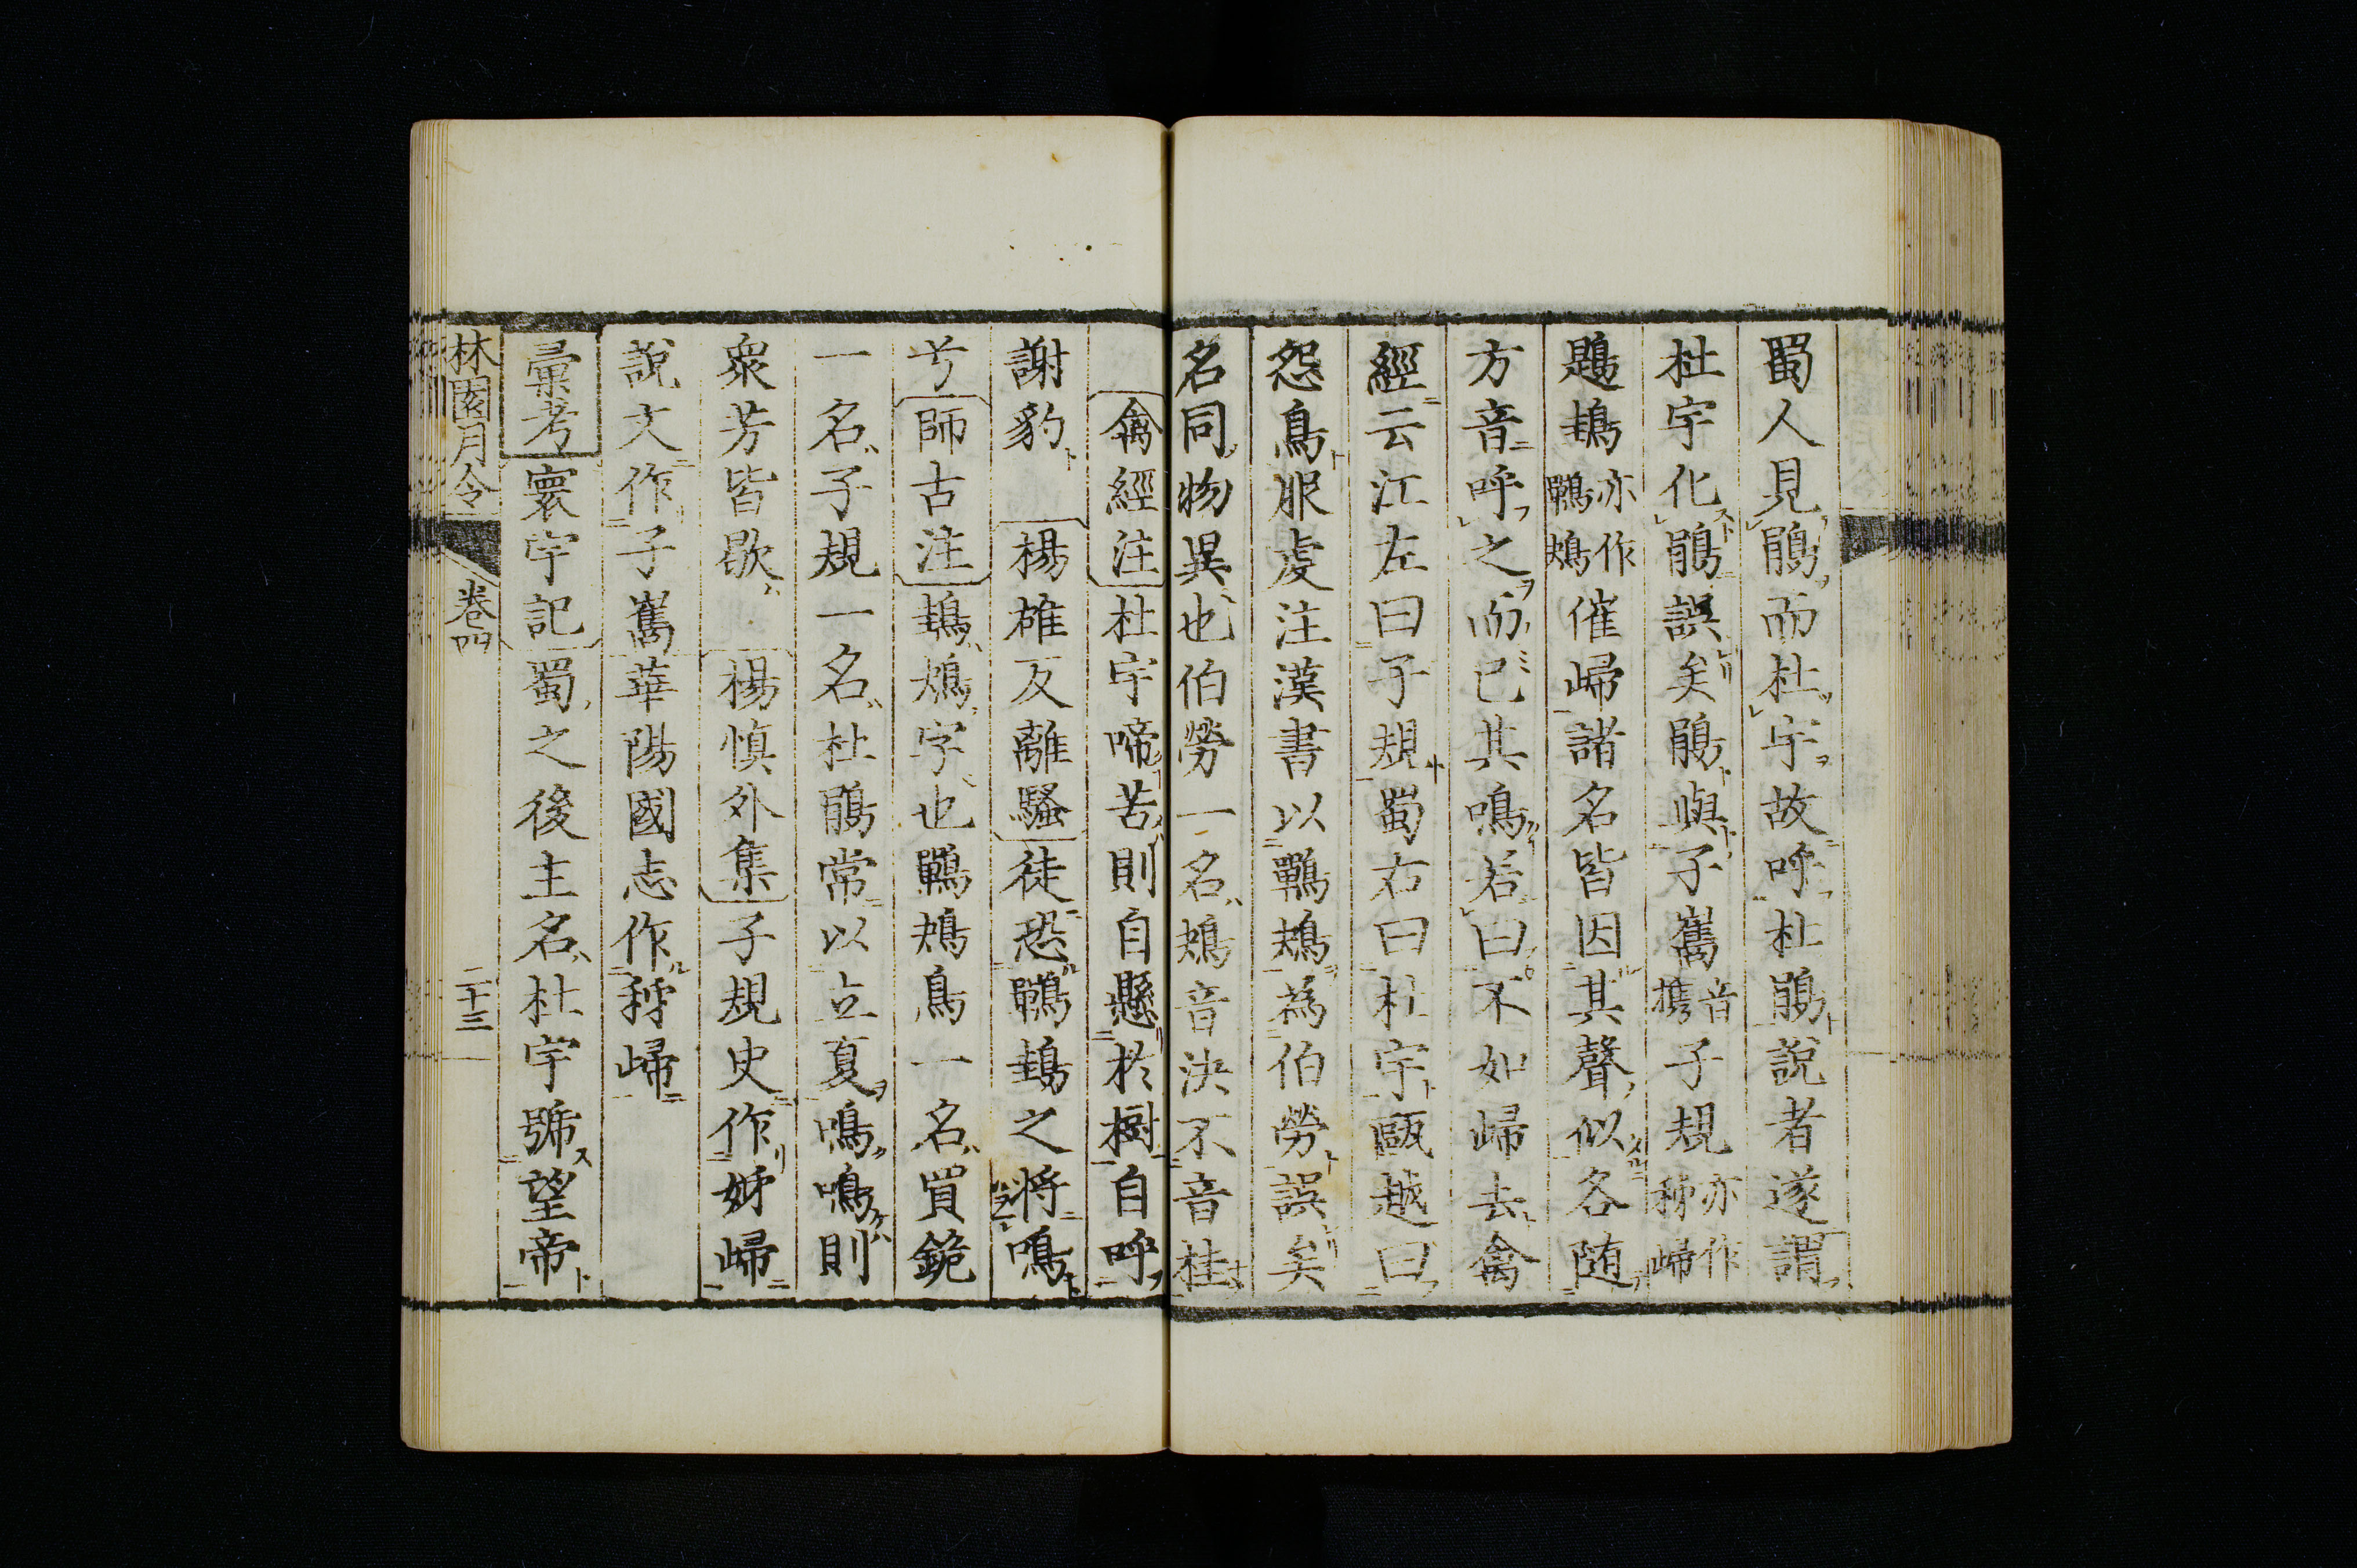 蜀人見鵑而杜宇故呼杜鵑說者遂謂
杜宇化鵑誤矣鵑與子嶲音携子規亦作秭歸
鶗鴂亦作鷤鴂催歸諸名皆因其聲似各随
方音呼之而已其鳴若曰不如歸去禽
經云江左曰子規蜀右曰杜宇甌越曰
怨鳥服虔注漢書以鷤鴂為伯勞誤矣
名同物異也伯勞一名鴂音決不音桂
禽經注杜宇啼苦則自懸於樹自呼
謝豹楊雄反離騷徒恐鷤之將鳴
師古注鴂字也鷤鴂鳥一名買鉇
一名子規一名杜鵑常以立夏鳴鳴則
衆芳皆歇楊慎外集子規史作姊歸
說文作子嶲華陽國志作秭歸
彙考寰宇記蜀之後主名杜宇號望帝
林園月令
卷四
二十三